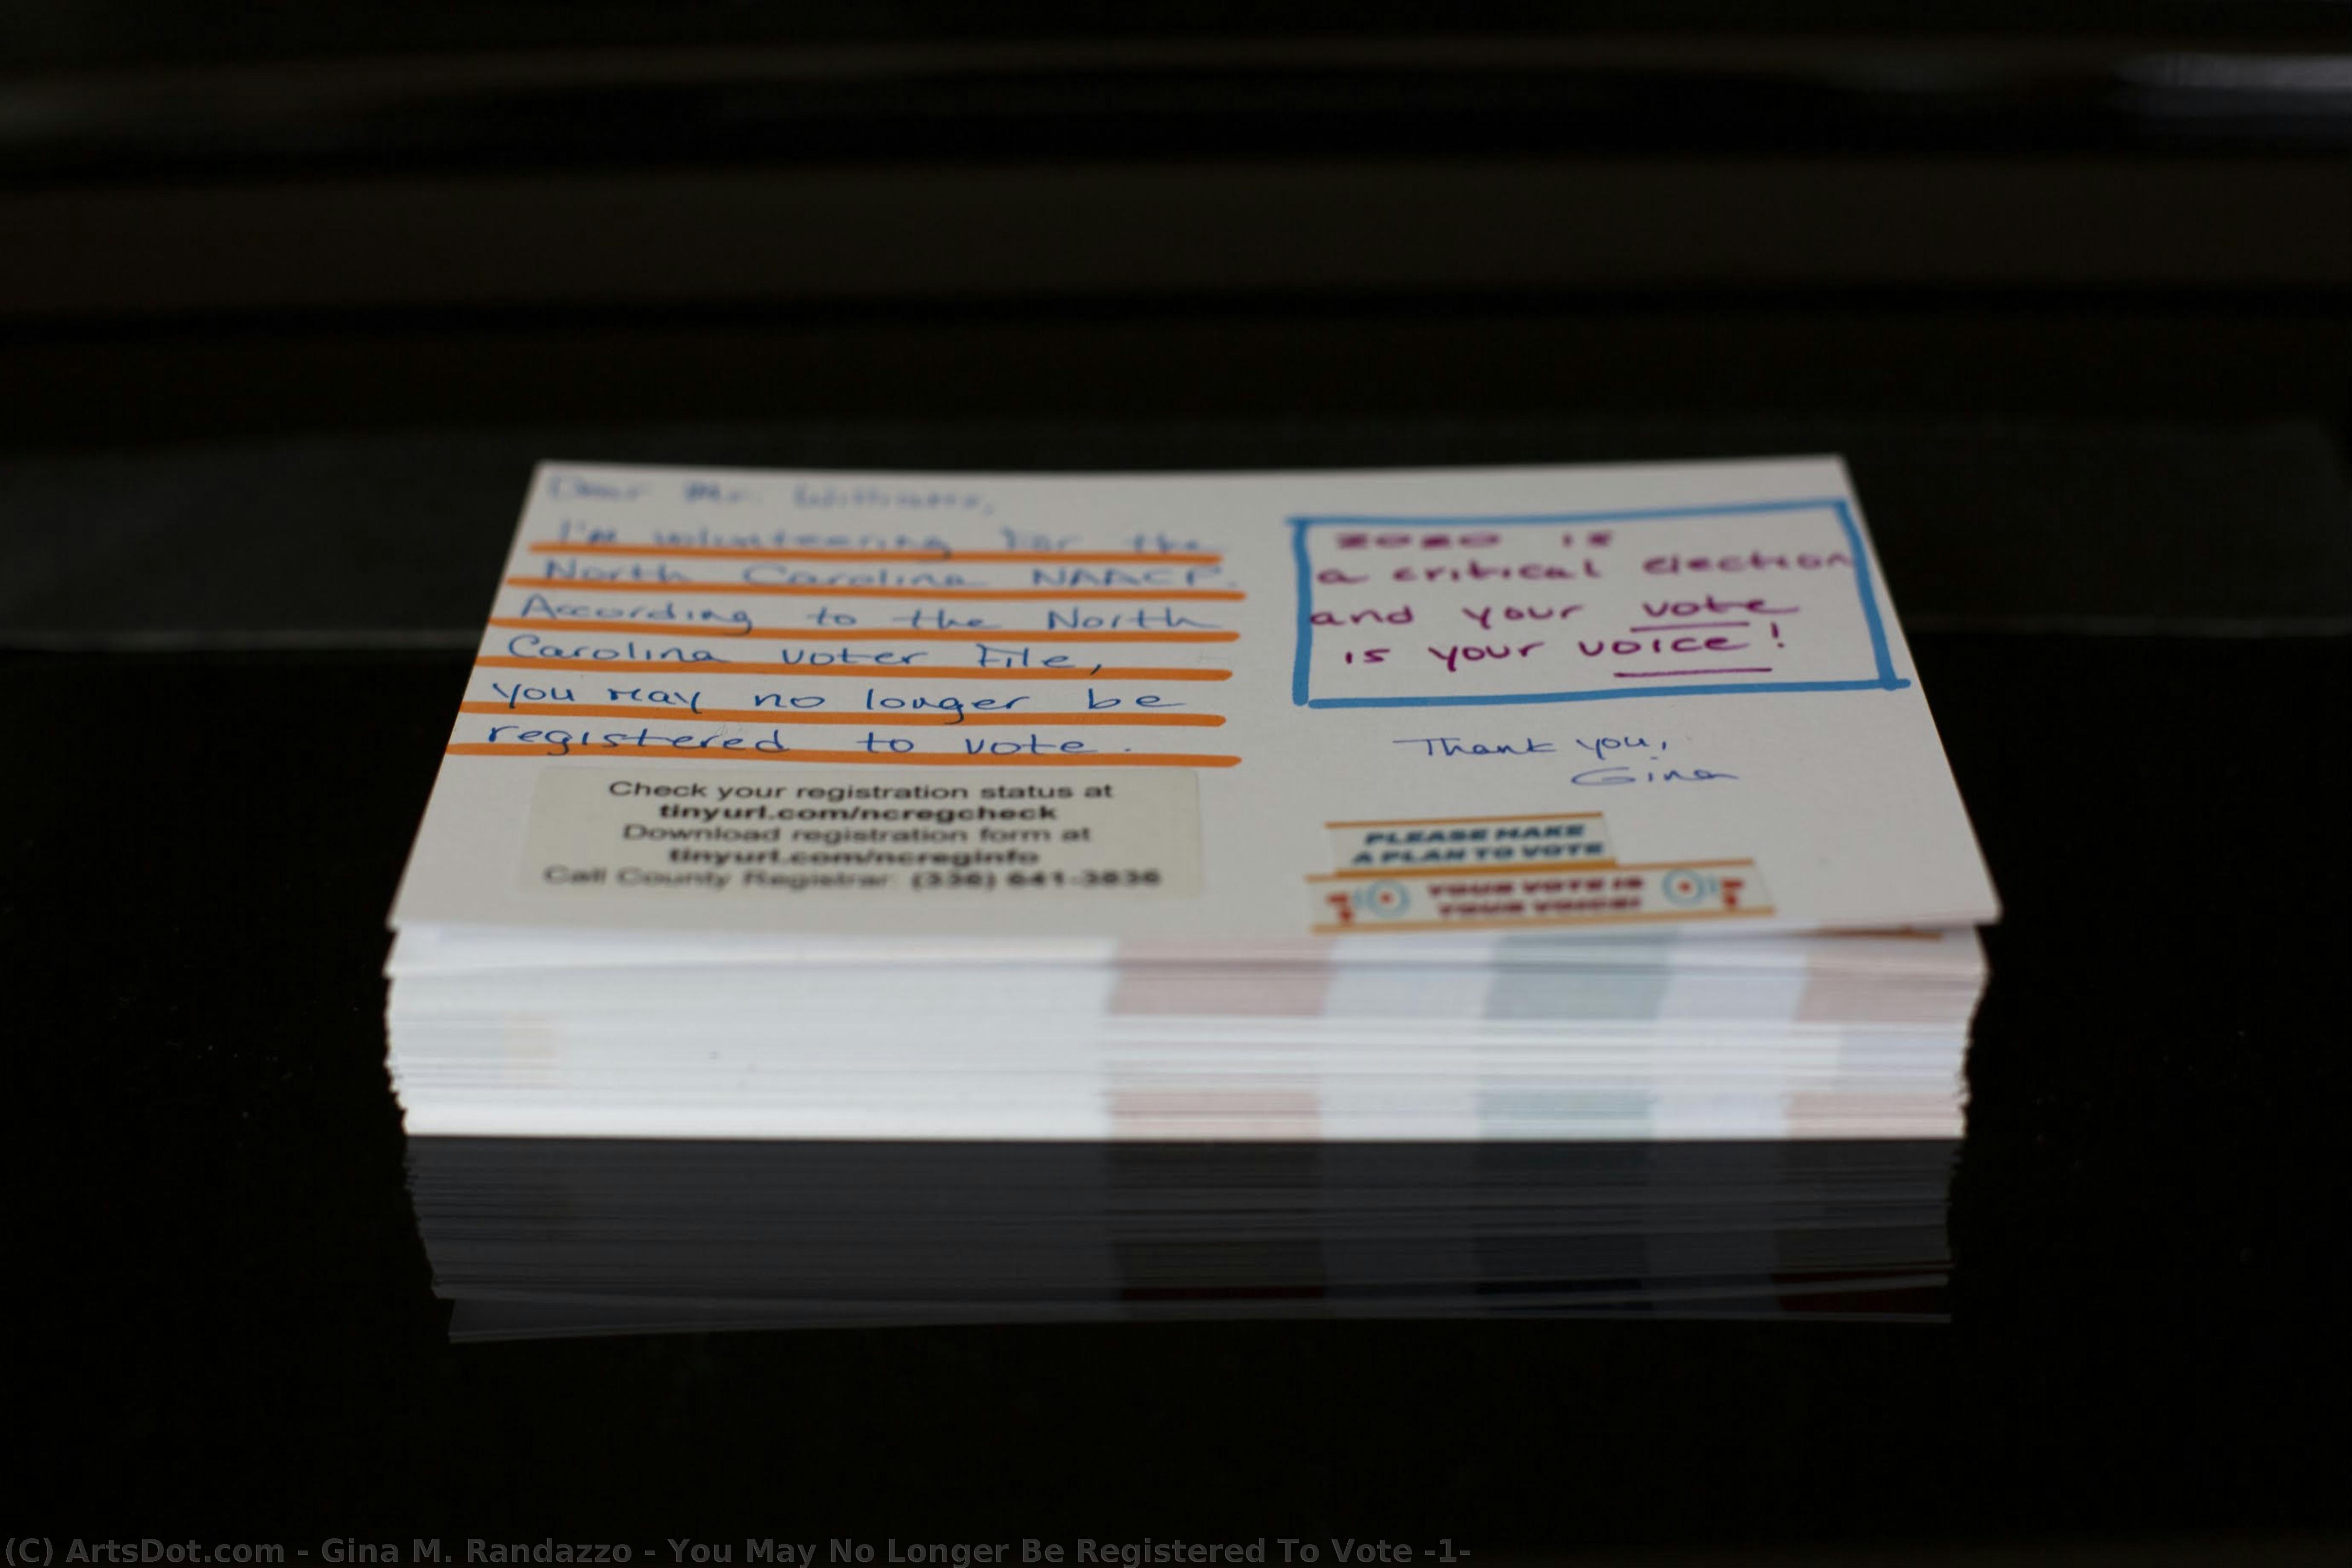 Dear Mr. Williams,
I'm volunteering for the
North Carolina NAACP.
According to the North
Carolina voter File,
you may no longer be
registered to vote.
Check your registration status at
tinyurl.com/ncregcheck
Download registration form at
tinyurl.com/ncreginfo
Call County Registrar: (336) 641-3836
2020 is
a critical election
and your vote
is your voice!
Thank you,
Gina
PLEASE MAKE
A PLAN TO VOTE
YOUR VOTE IS
YOUR VOICE!
(C) ArtsDot.com - Gina M. Randazzo - You May No Longer Be Registered To Vote -1-